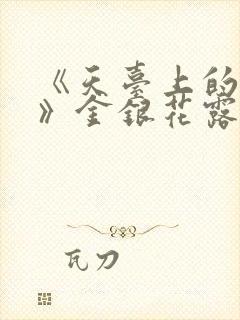 《天臺上的
》金銀花露
瓦刀